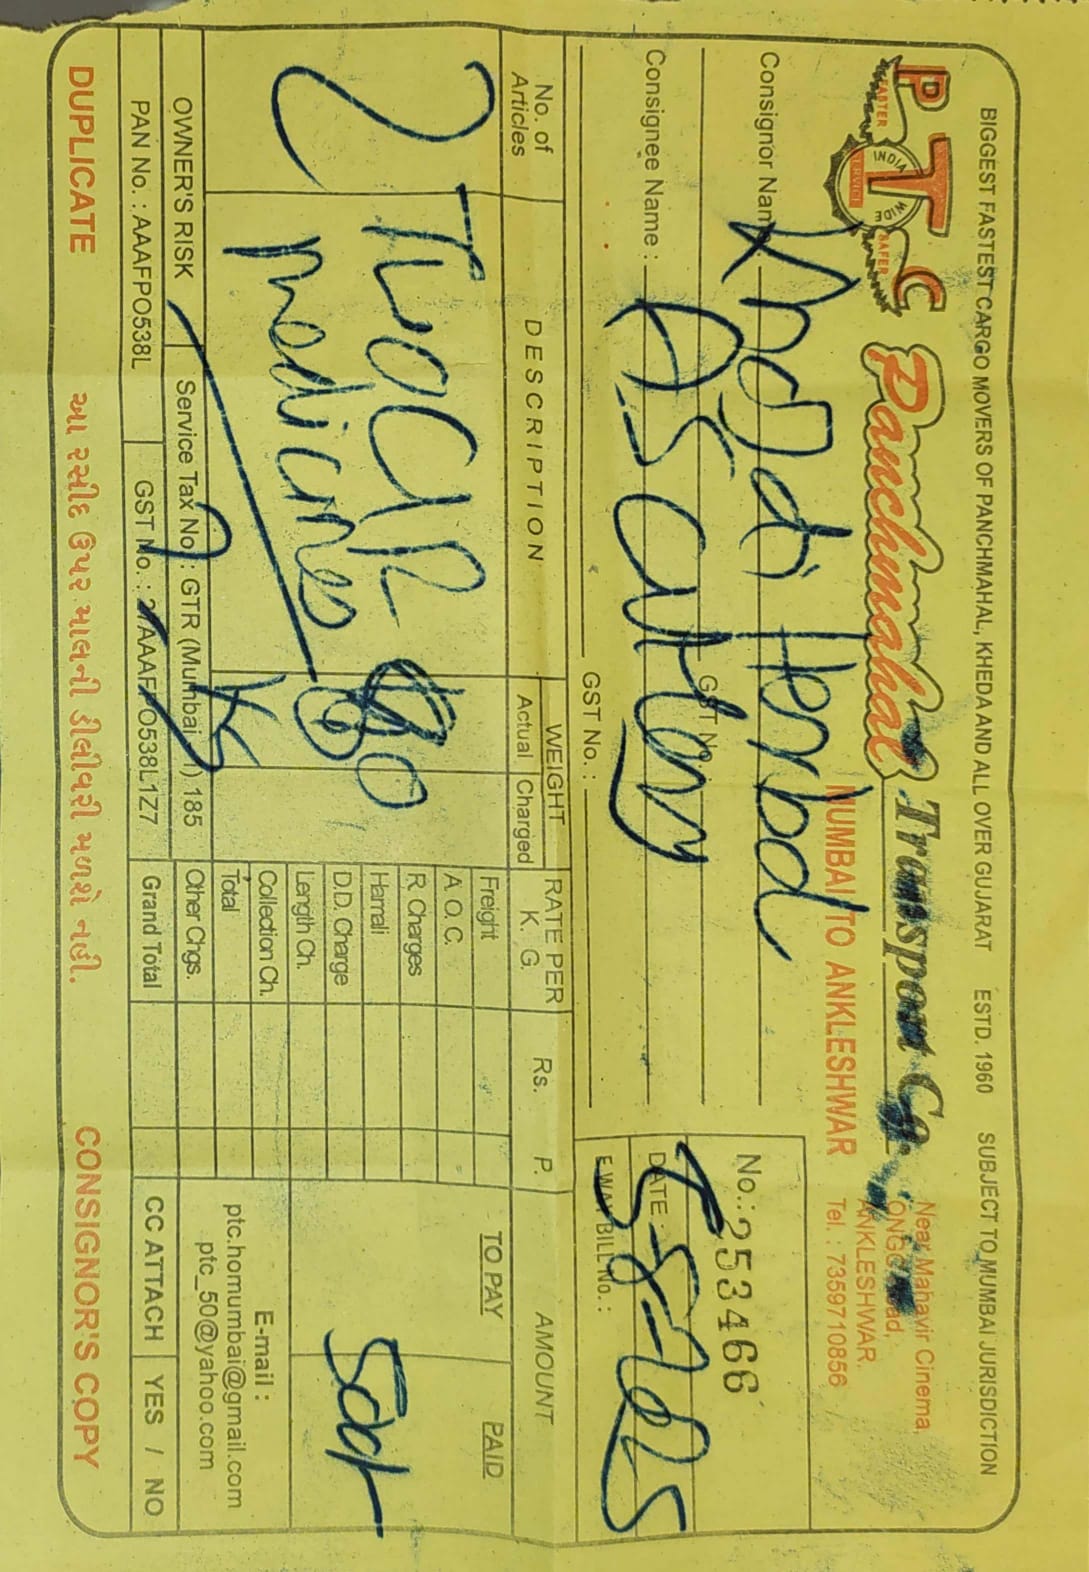 BIGGEST FASTEST CARGO MOVERS OF PANCHMAHAL, KHEDA AND ALL OVER GUJARAT ESTD. 1960 SUBJECT TO MUMBAI JURISDICTION
PTC
FASTER SAFER
INDIA WIDE
SERVICE
Panchmahal Transport Co.
Near Mahavir Cinema,
ONGC Road,
ANKLESHWAR.
Tel. : 7359710856
MUMBAI TO ANKLESHWAR
Consignor Name
GST No.
Consignee Name :
GST No. :
No.: 253466
DATE :
E.WAY BILL No. :
No. of Articles
DESCRIPTION
WEIGHT
Actual Charged
RATE PER K. G.
Rs. P.
AMOUNT
TO PAY PAID
2
medicines
Freight
A. O. C.
R. Charges
Hamali
D.D. Charge
Length Ch.
Collection Ch.
Total
Other Chgs.
Grand Total
E-mail :
ptc.homumbai@gmail.com
ptc_50@yahoo.com
OWNER'S RISK
Service Tax No. : GTR (Mumbai - I) 185
PAN No. : AAAFPO538L
GST No. : 27AAAFPO538L1Z7
CC ATTACH YES / NO
DUPLICATE
આ રસીદ ઉપર માલની ડીલીવરી મળશે નહી.
CONSIGNOR'S COPY